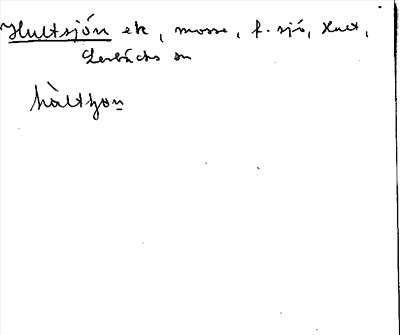 Hultsjön ek, mosse, f. sjö, Hult,
Lerbäcks sn
hàltʃon